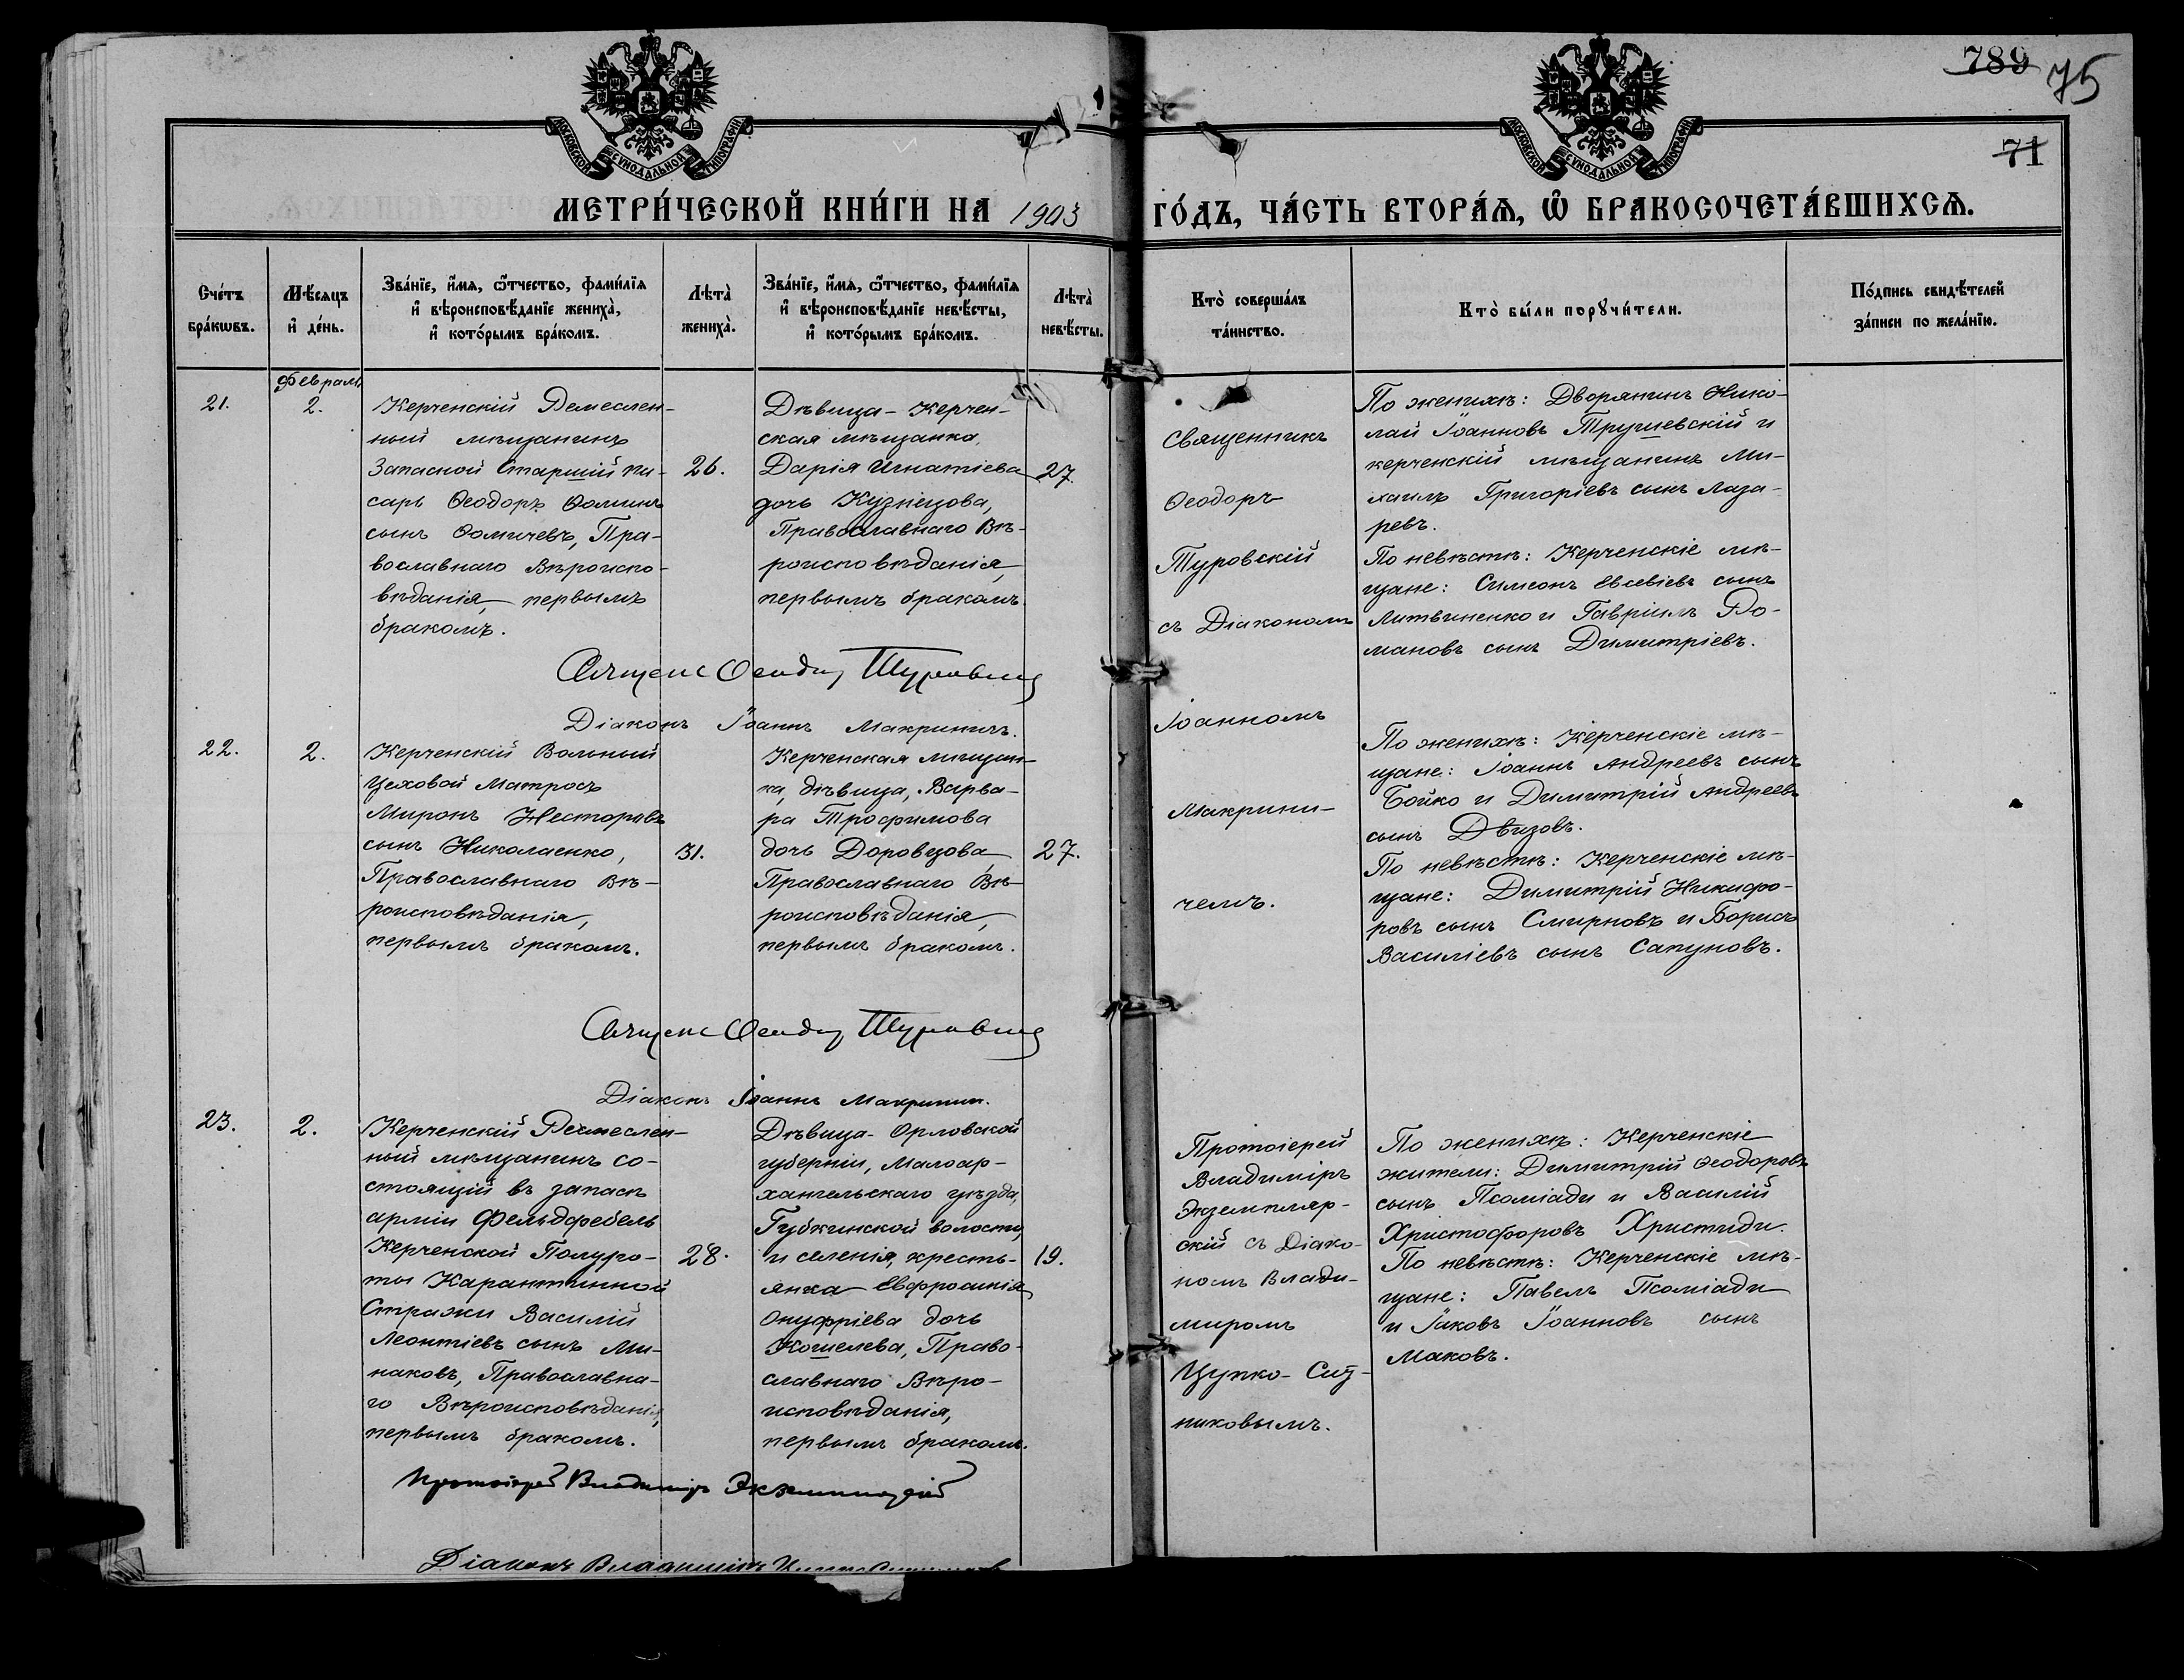 789 75
71
МОСКОВСКОЙ СѴНОДАЛЬНОЙ ТИПОГРАФІИ
МОСКОВСКОЙ СѴНОДАЛЬНОЙ ТИПОГРАФІИ
МЕТРИ́ЧЕСКОЙ КНИ́ГИ НА 1903 ГО́ДЪ, ЧА́СТЬ ВТОРА́Ѧ, Ѡ҆ БРАКОСОЧЕТА́ВШИХСѦ.
Сче́тъ
бра́кѡвъ.
Мѣ́сѧцъ
и҆ де́нь.
Зва́нїе, и҆́мѧ, ѻ҆́тчество, фами́лїѧ
и҆ вѣроисповѣ́данїе жениха̀,
и҆ кото́рымъ бра́комъ.
Лѣта̀
жениха̀.
Зва́нїе, и҆́мѧ, ѻ҆́тчество, фами́лїѧ
и҆ вѣроисповѣ́данїе невѣ́сты,
и҆ кото́рымъ бра́комъ.
Лѣта̀
невѣ́сты.
Кто̀ соверша́лъ
та́инство.
Кто̀ бы́ли порꙋчи́тели.
По́дпись свидѣ́телей
за́писи по жела́нїю.
21.
Февраль
2.
Керченскій Ремеслен-
ный мѣщанинъ
Запасной Старшій пи-
сарь Ѳеодоръ Ѳоминъ
сынъ Ѳомичевъ, Пра-
вославнаго Вѣроиспо-
вѣданія, первымъ
бракомъ.
26.
Дѣвица - Керчен-
ская мѣщанка,
Дарія Игнатіева
дочь Кузнецова,
Православнаго Вѣ-
роисповѣданія,
первымъ бракомъ.
27.
Священникъ
Ѳеодоръ
Туровскій
съ Діакономъ
Іоанномъ
Макрини-
чемъ.
По женихѣ: Дворянинъ Нико-
лай Іоанновъ Трушевскій и
керченскій мѣщанинъ Ми-
хаилъ Григоріевъ сынъ Лаза-
ревъ.
По невѣстѣ: Керченскіе мѣ-
щане: Симеонъ Евсевіевъ сынъ
Литвиненко и Гавріилъ Ро-
мановъ сынъ Димитріевъ.
Священ Ѳеодоръ Туровскій
Діаконъ Іоаннъ Макриничъ.
22.
2.
Керченскій Вольный
Цеховой Матросъ
Миронъ Несторовъ
сынъ Николаенко,
Православнаго Вѣ-
роисповѣданія,
первымъ бракомъ.
31.
Керченская мѣщан-
ка, дѣвица, Варва-
ра Трофимова
дочь Доровцова,
Православнаго Вѣ-
роисповѣданія,
первымъ бракомъ.
27.
По женихѣ: Керченскіе мѣ-
щане: Іоаннъ Андреевъ сынъ
Бойко и Димитрій Андреевъ
сынъ
По невѣстѣ: Керченскіе мѣ-
щане: Димитрій Никифо-
ровъ сынъ Смирновъ и Борисъ
Василіевъ сынъ Сапуновъ.
Священ Ѳеодоръ Туровскій
Діаконъ Іоаннъ Макринич.
23.
2.
Керченскій Ремеслен-
ный мѣщанинъ со-
стоящій въ запасѣ
арміи Фельдфебель
Керченской Полуро-
ты Карантинной
Стражи Василій
Леонтіевъ сынъ Ми-
наковъ, Православна-
го Вѣроисповѣданія,
первымъ бракомъ.
28.
Дѣвица - Орловской
губерніи, Малоар-
хангельскаго уѣзда,
Губкинской волости,
и селенія, кресть-
янка Евфросинія
Онуфріева дочь
Кошелева, Право-
славнаго Вѣро-
исповѣданія,
первымъ бракомъ.
19.
Протоіерей
Владиміръ
Экземпляр-
скій съ Діако-
номъ Влади-
миромъ
Цупко - Сит-
никовымъ.
По женихѣ: Керченскіе
жители: Димитрій Ѳеодоровъ
сынъ Псоміади и Василій
Христофоровъ Христиди.
По невѣстѣ: Керченскіе мѣ-
щане: Павелъ Псоміади
и Іаковъ Іоанновъ сынъ
Маковъ.
Протоіерей Владиміръ Экземплярскій
Діаконъ Владиміръ